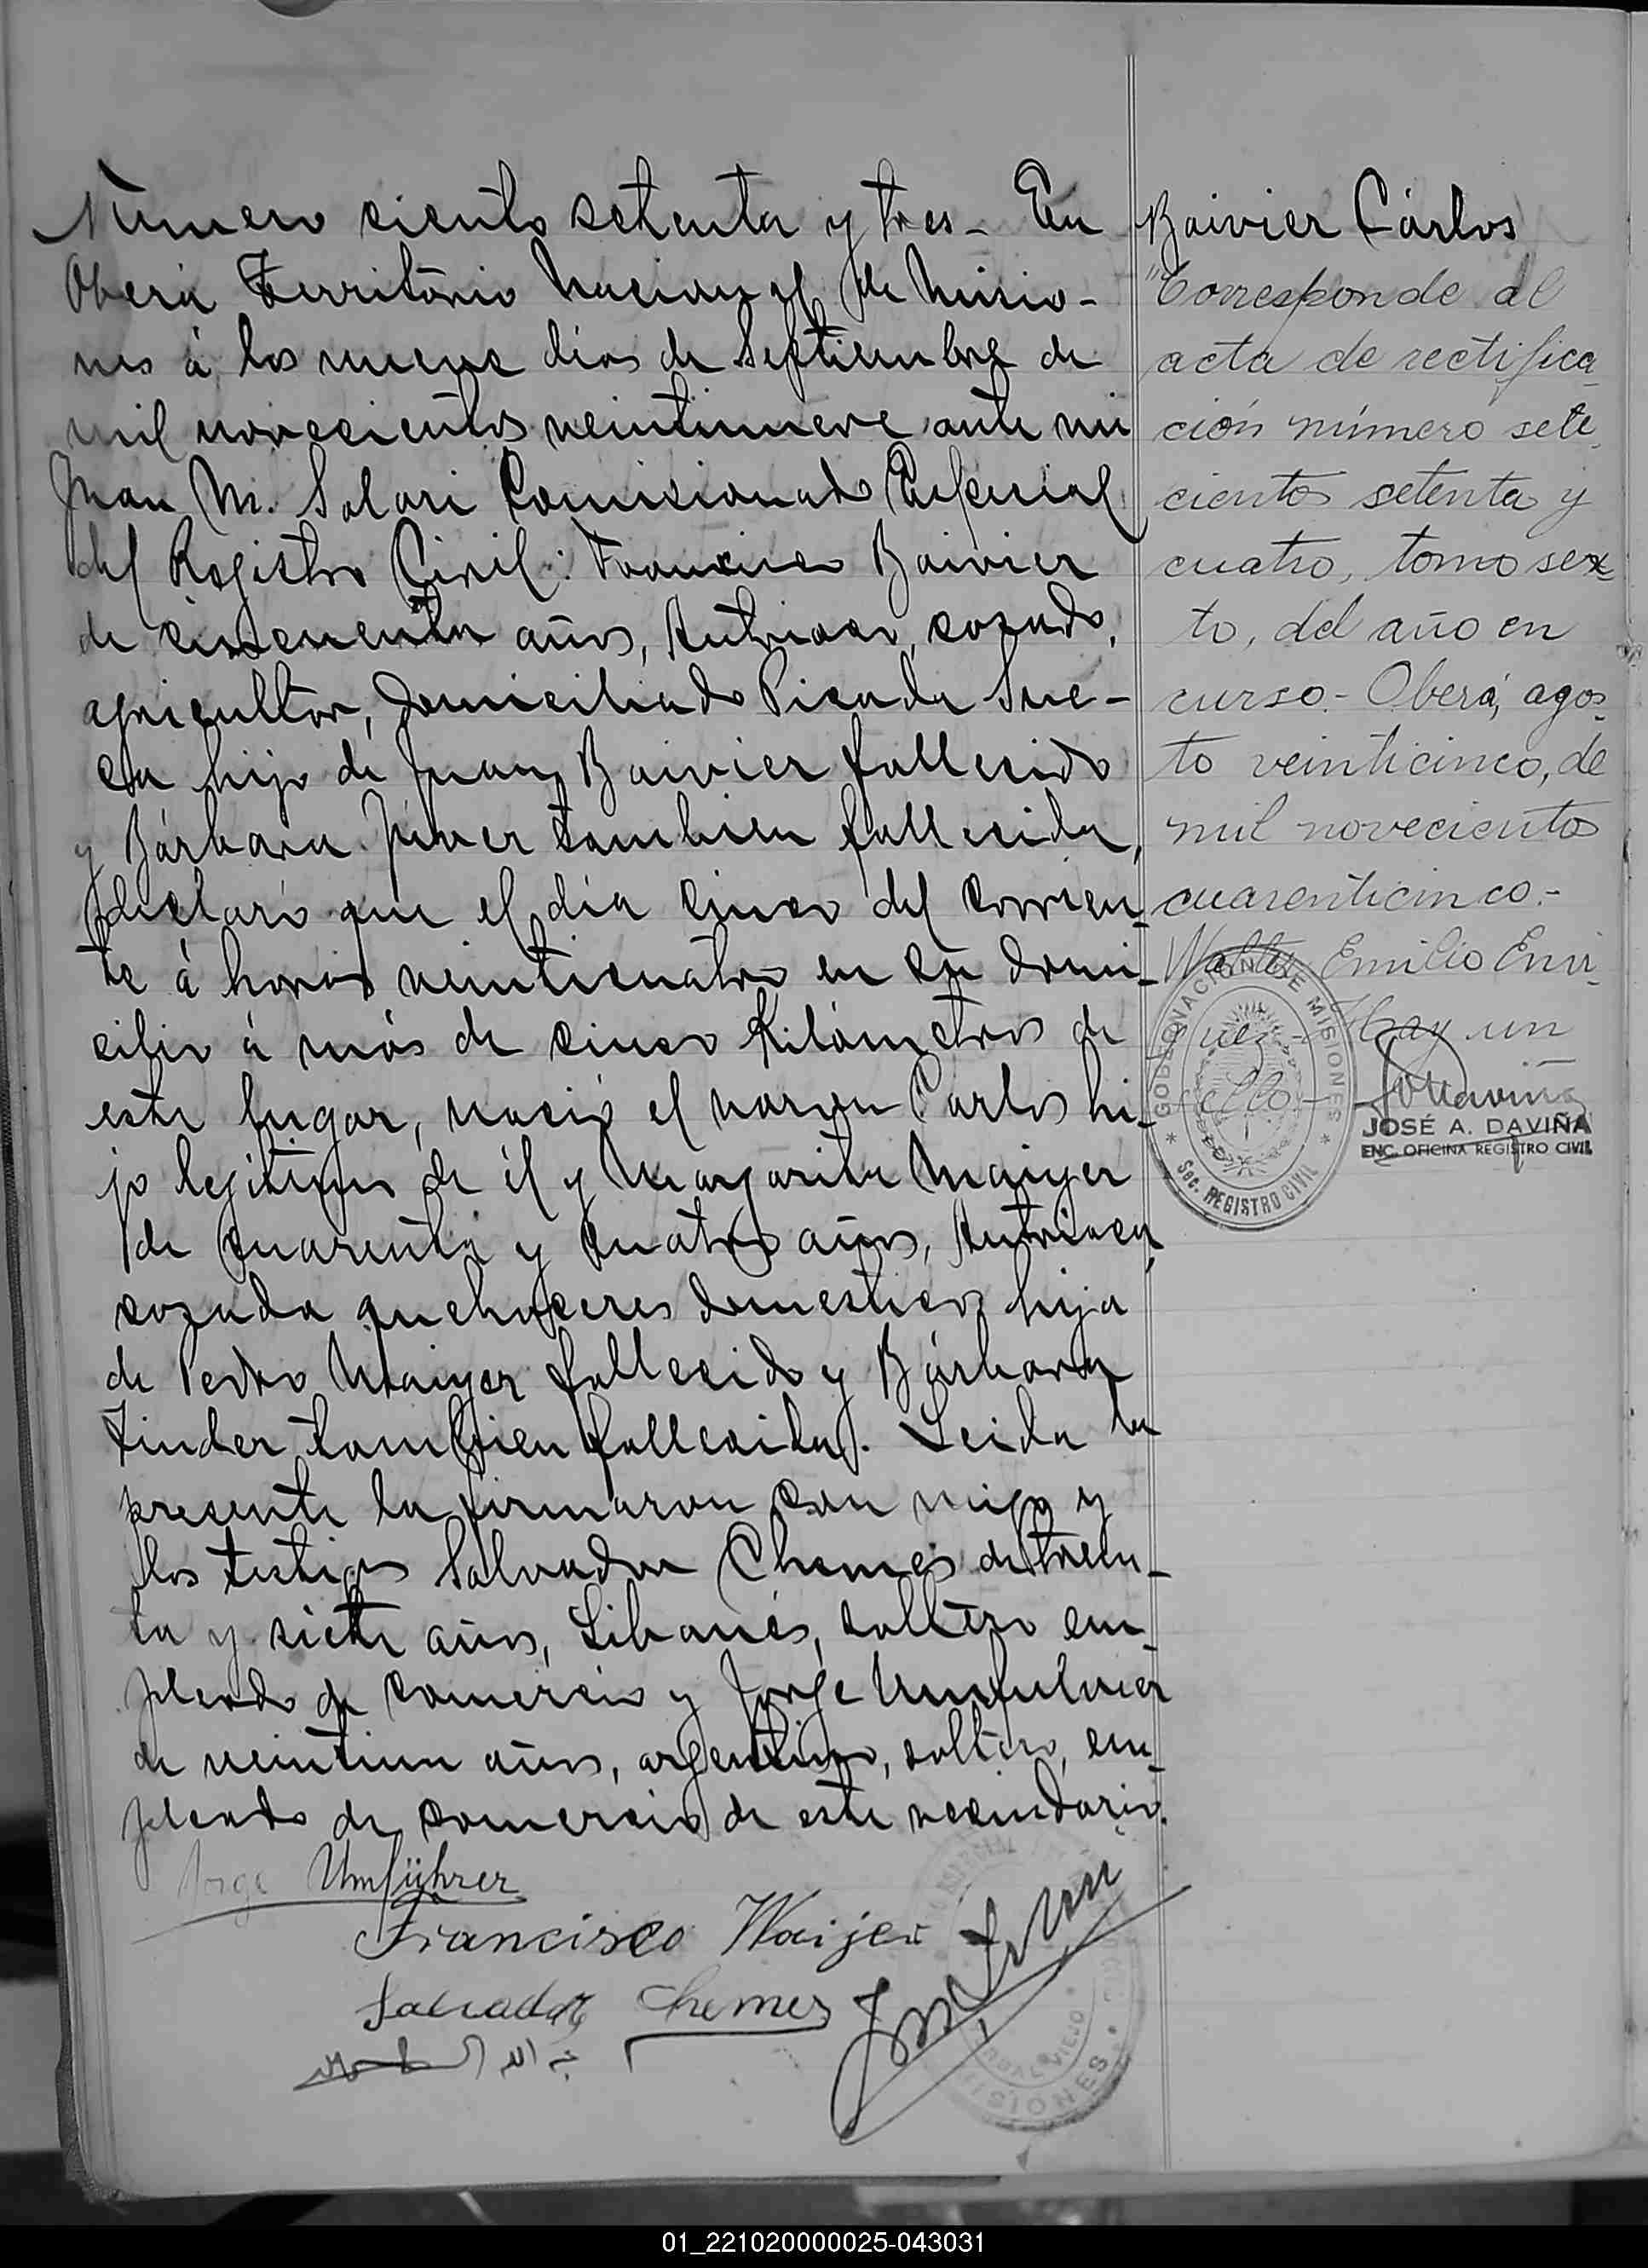 Número ciento setenta y tres - En
Oberá Território Nacional de Misio-
nes á los nueve dias de Septiembre de
mil novecientos veintinueve ante mi
Juan M. Solari Comisionado Especial
del Registro Civil: Francisco Baivier
de cincuenta años, Autriaco, cazado,
agricultor, domiciliado Picada Sue-
cia hijo de Juan Baivier fallecido
y Bárbara tambien fallecida,
declaró que el dia cinco del corrien-
te á horas veinticuatro en su domi-
cilio á más de cinco Kilómetros de
este lugar, nació el varon Carlos hi-
jo legítimo de él y Margarita Maiyer
de cuarenta y cuatro años, Autriaca,
cazada quehaceres domesticos hija
de Pedro Maiyer fallecido y Bárbara
Zinder tambien fallecida. Leida la
presente la firmaron con migo y
los testigos Salvador Chemes de trein-
ta y siete años, Libanés, soltero em-
pleado de comercio y Jorge
de veintiun años, argentino, soltero, em-
pleado de comercio de este vecindario.
Jorge Umführer
Francisco Waijer
Salvador Chemes
VIEJO
MISIONES
Baivier Cárlos
"Corresponde al
acta de rectifica-
ción número sete-
cientos setenta y
cuatro, tomo sex-
to, del año en
curso.- Oberá, agos-
to veinticinco, de
mil novecientos
cuarenticinco.-
Walter Emilio Enri-
quez - Hay un
sello -
GOBERNACION DE MISIONES
Sec. REGISTRO CIVIL
JOSÉ A. DAVIÑA
ENC. OFICINA REGISTRO CIVIL
01_221020000025-043031